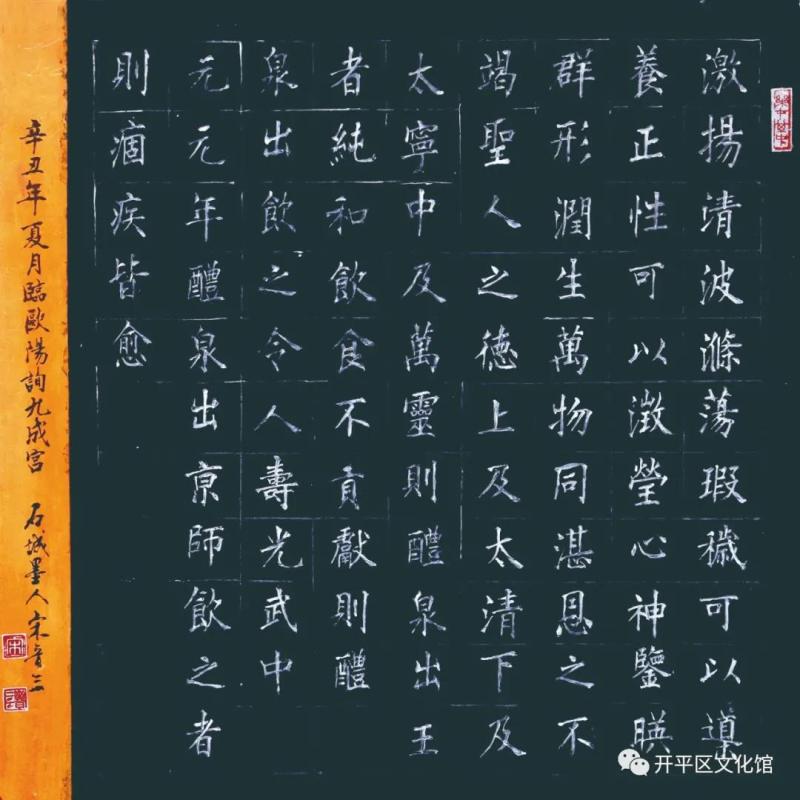 激揚清波滌蕩瑕穢可以導
養正性可以澂瑩心神鑒暎
群形潤生萬物同湛恩之不
竭聖人之徳上及太清下及
太寧中及萬靈則醴泉出王
者純和飲食不貢獻則醴
泉出飲之令人壽光武中
元元年醴泉出亰師飲之者
則痼疾皆愈
辛丑年夏月臨歐陽詢九成宮 石城墨人宋音三
开平区文化馆